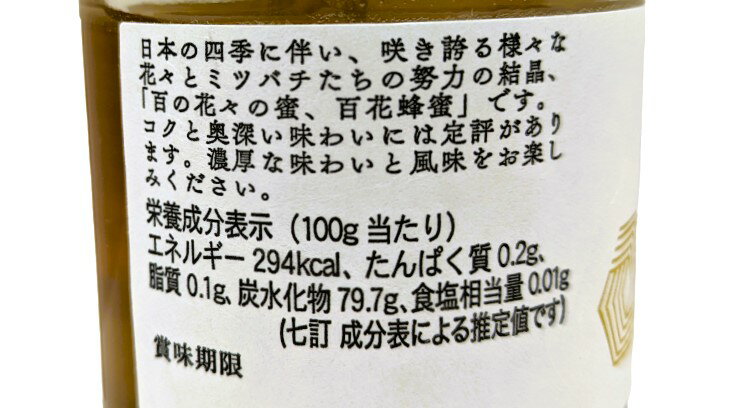 日本の四季に伴い、咲き誇る様々な
花々とミツバチたちの努力の結晶、
「百の花々の蜜、百花蜂蜜」です。
コクと奥深い味わいには定評があり
ます。濃厚な味わいと風味をお楽し
みください。
栄養成分表示（100g 当たり）
エネルギー 294kcal、たんぱく質 0.2g、
脂質 0.1g、炭水化物 79.7g、食塩相当量 0.01g
(七訂 成分表による推定値です)
賞味期限